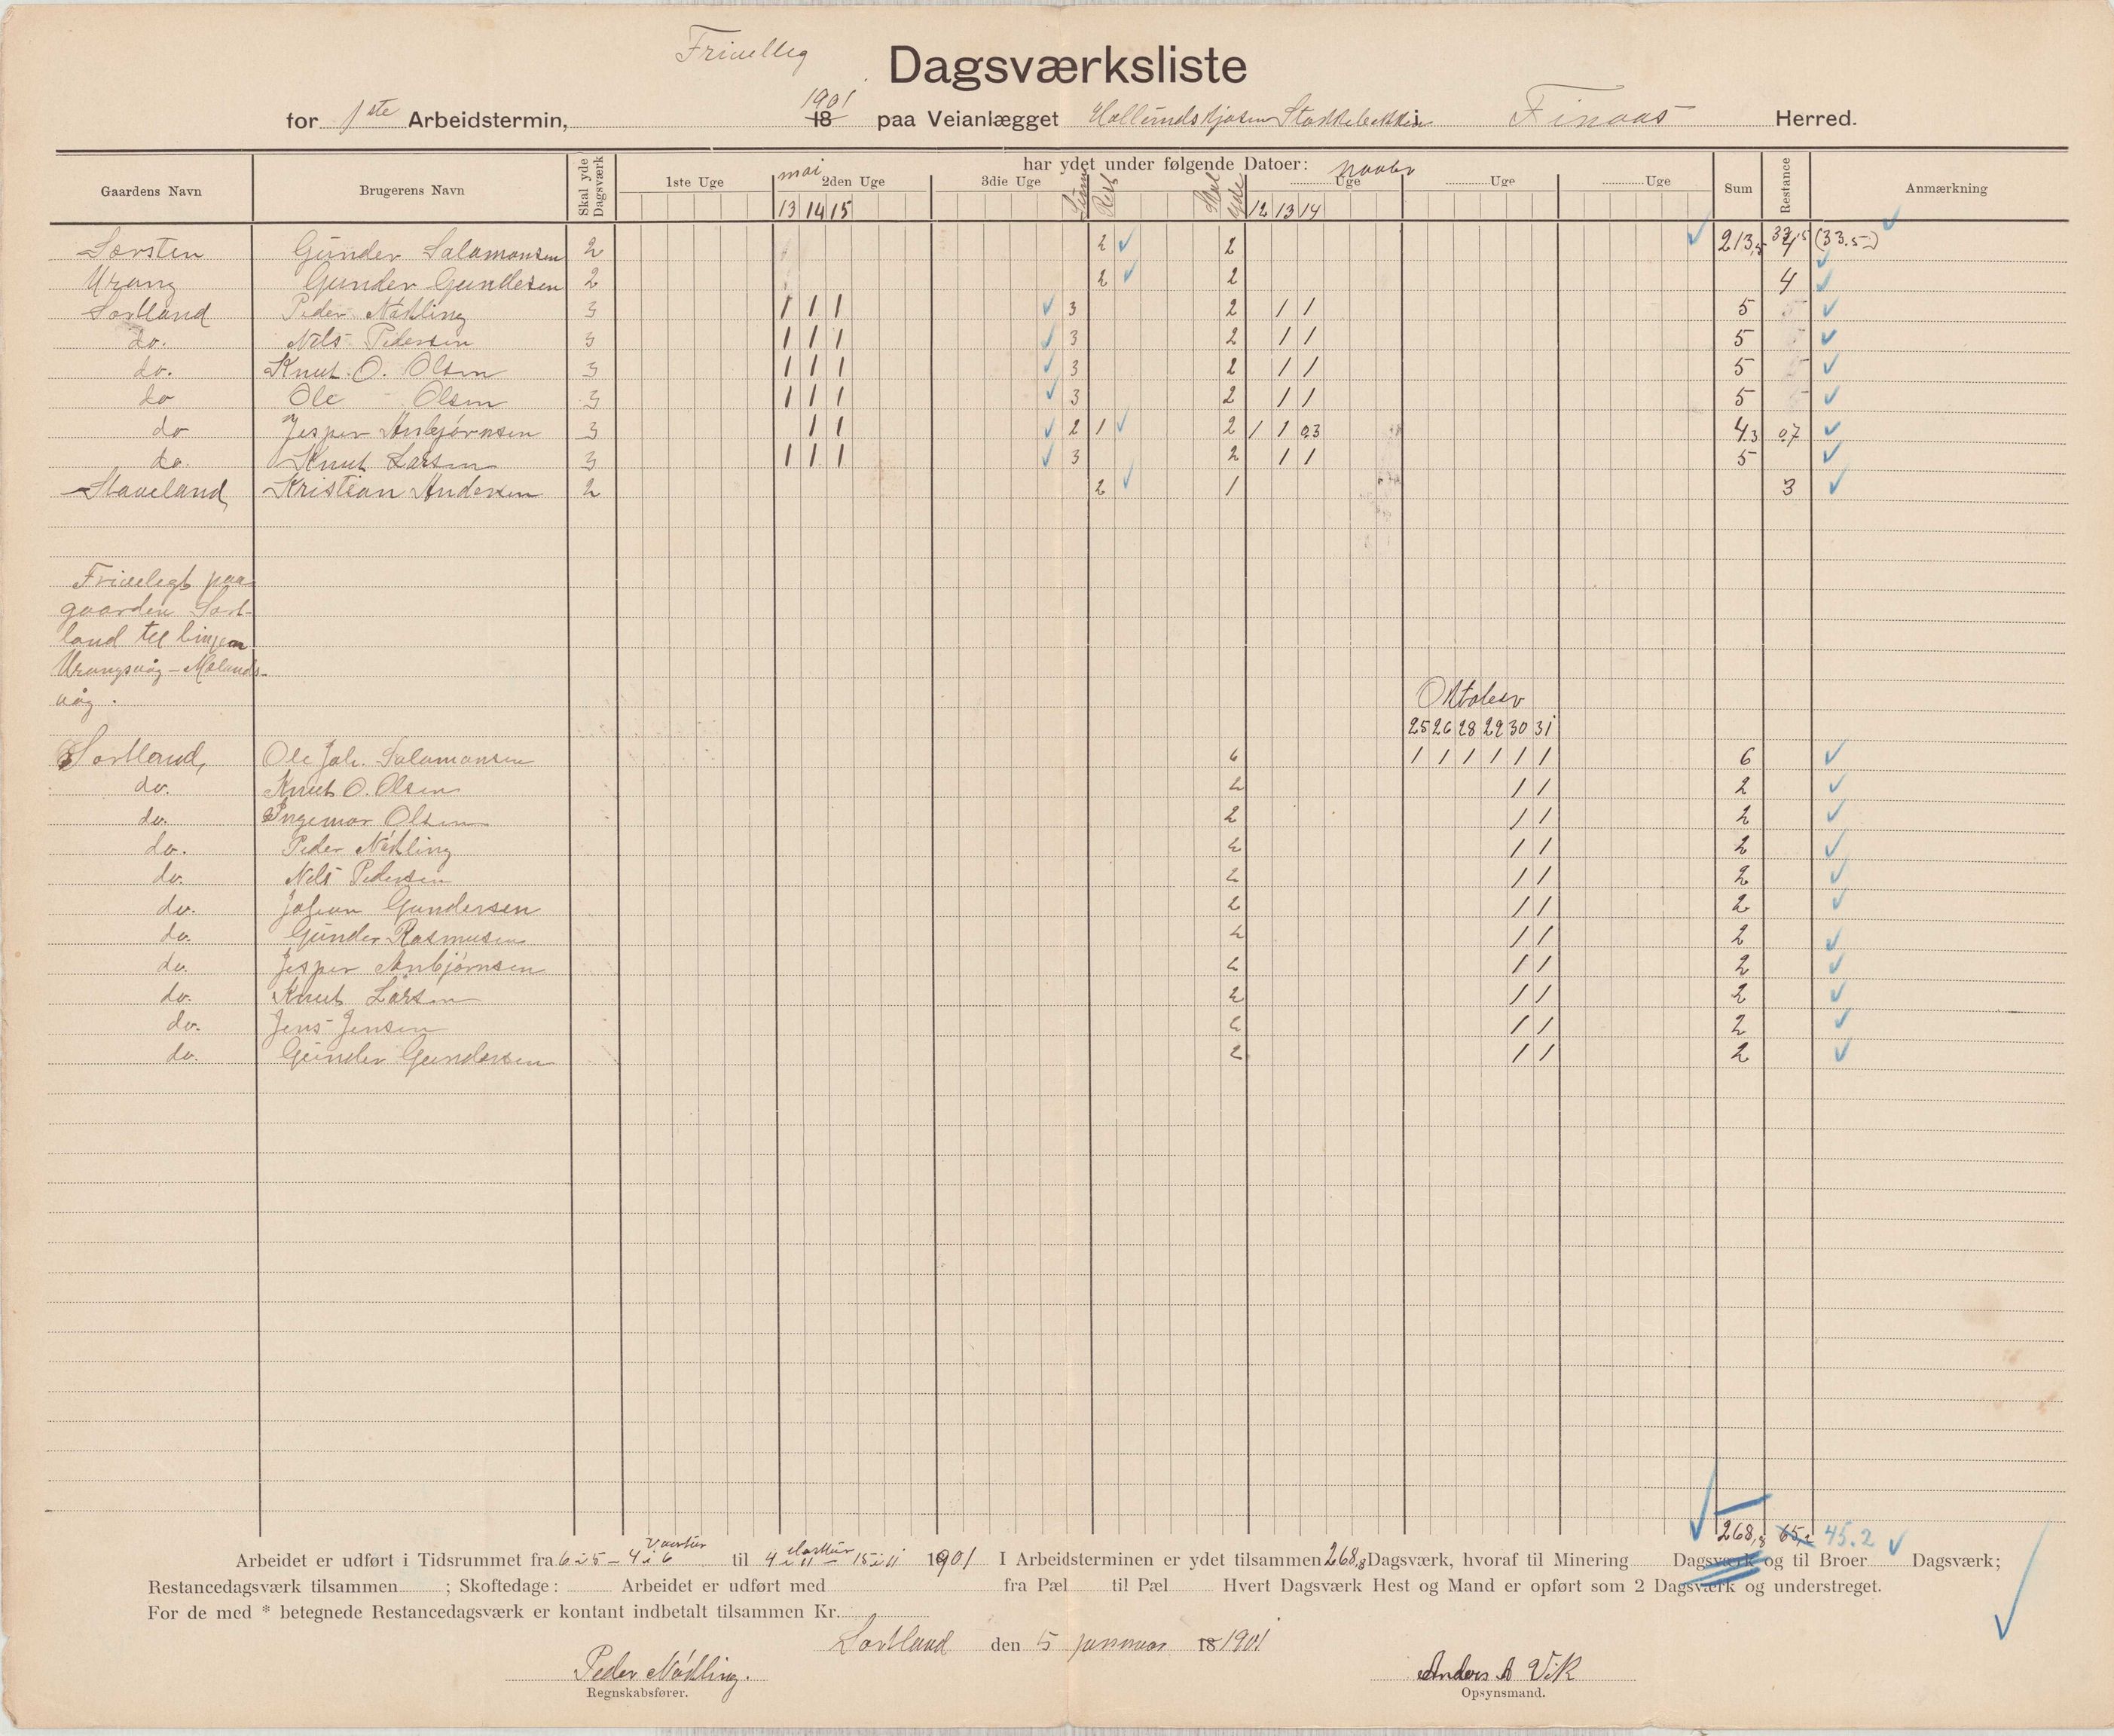 Frivellig
Dagsværksliste
for 1ste Arbeidstermin, 18 1901 paa Veianlægget Hollundskjosen Stokkebekken i Finaas Herred.
Gaardens Navn Brugerens Navn Skal yde Dagsværk har ydet under følgende Datoer: Sum Restance Anmærkning
1ste Uge mai 2den Uge 3die Uge Rest Skal yde Uge Uge Uge
13 14 15 12 13 14
Gunder Salamonsen 2 2 2 213,5 33,5 4 (33.5)
Urang Gunder Gundesen 2 2 2 4
Sortland Peder Nökling 3 1 1 1 3 2 1 1 5
do. Nels Pedersen 3 1 1 1 3 2 1 1 5
do. Knut O. Olsen 3 1 1 1 3 2 1 1 5
do Ole Olsen 3 1 1 1 3 2 1 1 5
do Jesper Anbjørnsen 3 1 1 2 1 2 1 1 0,3 4,3 0,7
do. Knut Larsen 3 1 1 1 3 2 1 1 5
Staveland Kristian Andersen 2 2 1 3
Frivelegt paa
gaarden Sort-
land til linjen
Urangsvåg - Mølands-
våg.
Oktober
25 26 28 29 30 31
Sortland, Ole Joh. Salamonsen 6 1 1 1 1 1 1 6
do. Knut O. Olsen 2 1 1 2
do. Ingemar Olsen 2 1 1 2
do. Peder Nökling 2 1 1 2
do. Nels Pedersen 2 1 1 2
do. Johan Gundersen 2 1 1 2
do. Gunder Rasmusen 2 1 1 2
do. Jesper Anbjørnsen 2 1 1 2
do. Knut Larsen 2 1 1 2
do. Jens Jensen 2 1 1 2
do. Gunder Gundersen 2 1 1 2
268,8 65,2 45.2
Arbeidet er udført i Tidsrummet fra 6 i 5 - 4 i 6 til 4 i 11 - 15 i 11 1901 I Arbeidsterminen er ydet tilsammen 268,8 Dagsværk, hvoraf til Minering Dagsværk og til Broer Dagsværk;
Restancedagsværk tilsammen ; Skoftedage: Arbeidet er udført med fra Pæl til Pæl Hvert Dagsværk Hest og Mand er opført som 2 Dagsværk og understreget.
For de med * betegnede Restancedagsværk er kontant indbetalt tilsammen Kr.
Sortland den 5 januar 18 1901
Peder Nökling. Anders A Vik
Regnskabsfører. Opsynsmand.